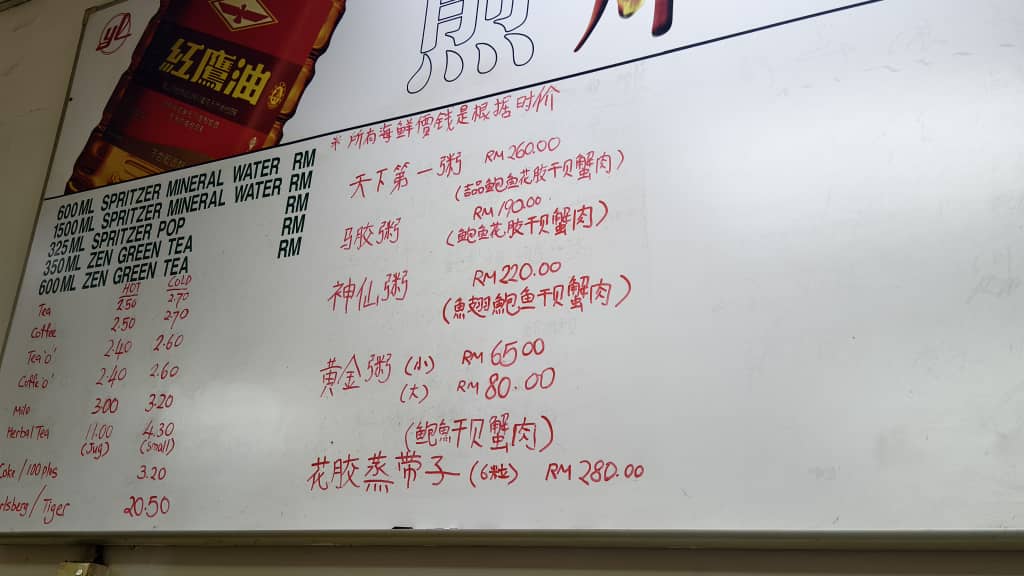 YL
紅鷹油
煎
600ML SPRITZER MINERAL WATER RM
1500ML SPRITZER MINERAL WATER RM
325ML SPRITZER POP RM
350ML ZEN GREEN TEA RM
600ML ZEN GREEN TEA RM
HOT COLD
Tea 2.50 2.70
Coffee 2.50 2.70
Tea 'o' 2.40 2.60
Coffe 'o' 2.40 2.60
Milo 3.00 3.20
Herbal Tea 11.00 4.30
(Jug) (Small)
Coke / 100 plus 3.20
rlsberg / Tiger 20.50
* 所有海鲜價钱是根据时价
天下第一粥 RM 260.00
(吉品鲍鱼花胶干贝蟹肉)
马胶粥 RM 190.00
(鲍鱼花胶干贝蟹肉)
神仙粥 RM 220.00
(魚翅鲍鱼干贝蟹肉)
黄金粥 (小) RM 65.00
(大) RM 80.00
(鲍魚干贝蟹肉)
花胶蒸带子 (6粒) RM 280.00